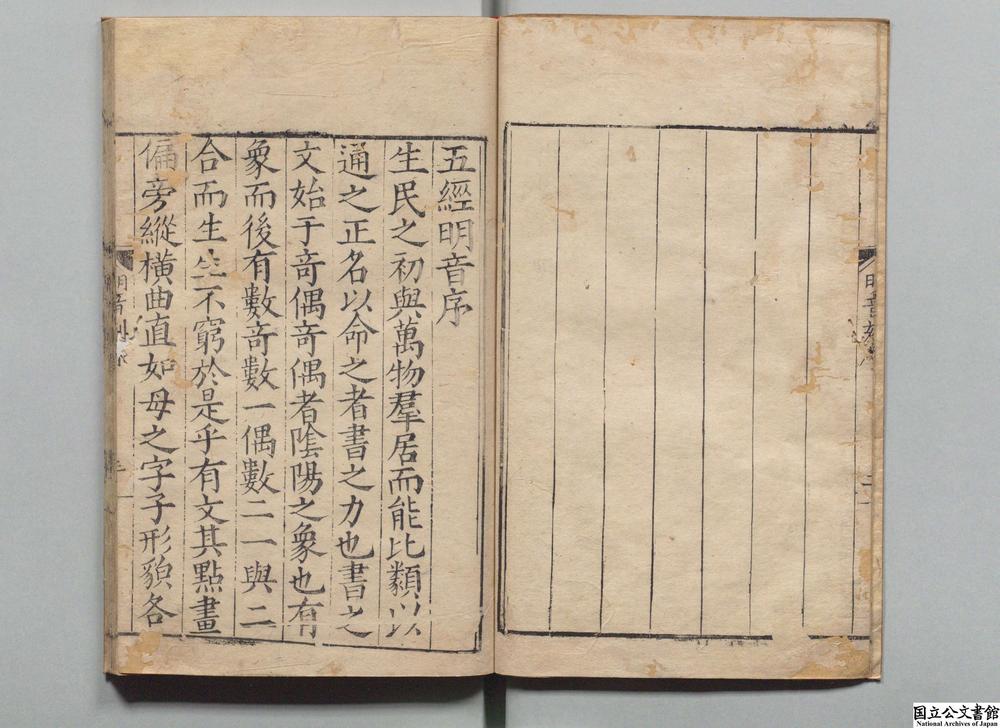 五經明音序
生民之初與萬物羣居而能比類以
通之正名以命之者書之力也書之
文始于竒偶竒偶者陰陽之象也有
象而後有數竒數一偶數二一與二
合而生生不窮於是乎有文其點畫
偏旁縱橫曲直如母之字子形貌各
国立公文書館
National Archives of Japan